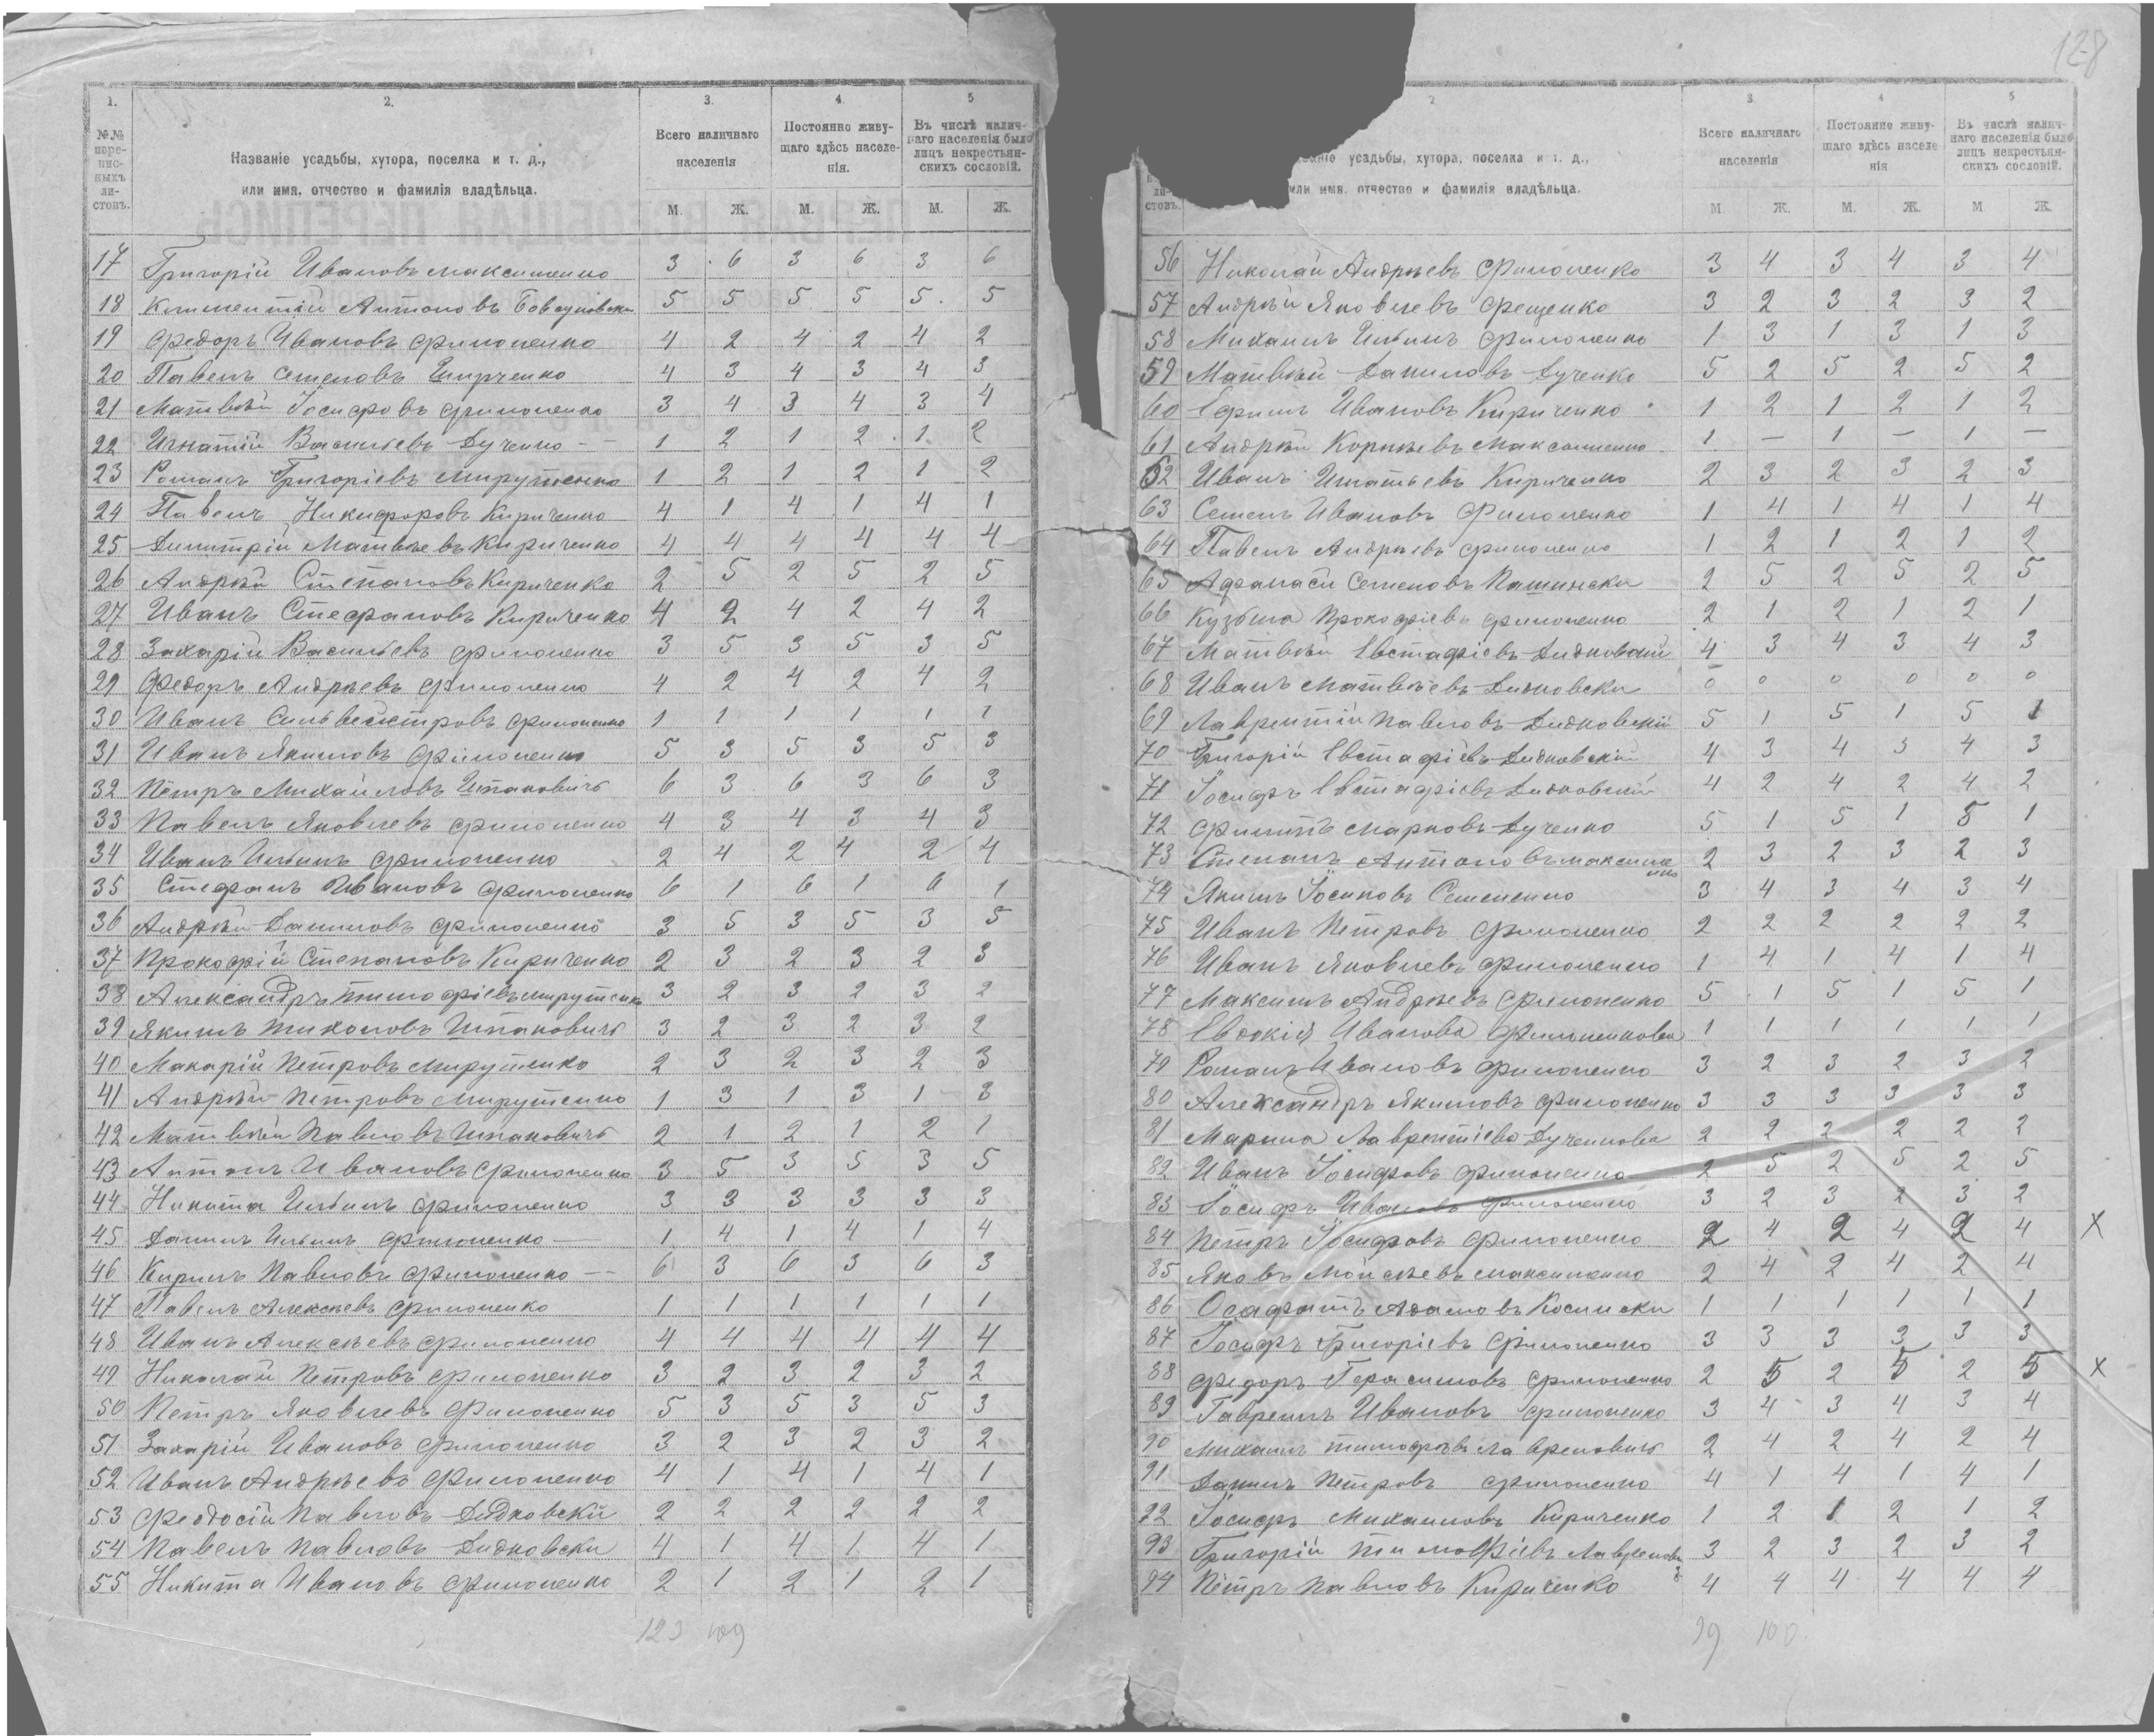 128
1. 2. 3. 4. 5
№№ пере-пис-ныхъ ли-стовъ. Названіе усадьбы, хутора, поселка и т. д., или имя, отчество и фамилія владѣльца. Всего наличнаго населенія Постоянно живу-щаго здѣсь населе-нія. Въ числѣ налич-наго населенія было лицъ некрестьян-скихъ сословій.
М. Ж. М. Ж. М. Ж.
17 Григорій Ивановъ Максименко 3 6 3 6 3 6
18 Климентій Антоновъ 5 5 5 5 5 5
19 Федоръ Ивановъ Филоненко 4 2 4 2 4 2
20 Павелъ Семеновъ 4 3 4 3 4 3
21 Матвѣй Іосифовъ Филоненко 3 4 3 4 3 4
22 Игнатій Васильевъ Дученко 1 2 1 2 1 2
23 Романъ Григоріевъ Мирутенко 1 2 1 2 1 2
24 Павелъ Никифоровъ Кириченко 4 1 4 1 4 1
25 Димитрій Матвѣевъ Кириченко 4 4 4 4 4 4
26 Андрѣй Степановъ Кириченко 2 5 2 5 2 5
27 Иванъ Стефановъ Кириченко 4 2 4 2 4 2
28 Захарій Васильевъ Филоненко 3 5 3 5 3 5
29 Федоръ Андрѣевъ Филоненко 4 2 4 2 4 2
30 Иванъ Сильвейстровъ Филоненко 1 1 1 1 1 1
31 Иванъ Якимовъ Филоненко 5 3 5 3 5 3
32 Петръ Михайловъ Шпаковичъ 6 3 6 3 6 3
33 Павелъ Яковлевъ Филоненко 4 3 4 3 4 3
34 Иванъ Ильинъ Филоненко 2 4 2 4 2 4
35 Стефанъ Ивановъ Филоненко 6 1 6 1 6 1
36 Андрѣй Даниловъ Филоненко 3 5 3 5 3 5
37 Прокофій Степановъ Кириченко 2 3 2 3 2 3
38 Александръ Тимофіевъ Мирутенко 3 2 3 2 3 2
39 Якимъ Тихоновъ Шпаковичъ 3 2 3 2 3 2
40 Макарій Петровъ Мирутенко 2 3 2 3 2 3
41 Андрѣй Петровъ Мирутенко 1 3 1 3 1 3
42 Матвѣй Павловъ Шпаковичъ 2 1 2 1 2 1
43 Антонъ Ивановъ Филоненко 3 5 3 5 3 5
44 Никита Ильинъ Филоненко 3 3 3 3 3 3
45 Данилъ Ильинъ Филоненко 1 4 1 4 1 4
46 Кирилъ Павловъ Филоненко 6 3 6 3 6 3
47 Павелъ Алексѣевъ Филоненко 1 1 1 1 1 1
48 Иванъ Алексѣевъ Филоненко 4 4 4 4 4 4
49 Николай Петровъ Филоненко 3 2 3 2 3 2
50 Петръ Яковлевъ Филоненко 5 3 5 3 5 3
51 Захарій Ивановъ Филоненко 3 2 3 2 3 2
52 Иванъ Андрѣевъ Филоненко 4 1 4 1 4 1
53 Феодосій Павловъ Дидковскій 2 2 2 2 2 2
54 Павелъ Павловъ Дидковски 4 1 4 1 4 1
55 Никита Ивановъ Филоненко 2 1 2 1 2 1
123 109
2 3 4 5
ли-стовъ. званіе усадьбы, хутора, поселка и т. д., или имя, отчество и фамилія владѣльца. Всего наличнаго населенія Постоянно живу-щаго здѣсь населе-нія Въ числѣ налич-наго населенія было лицъ некрестьян-скихъ сословій.
М. Ж. М. Ж. М Ж.
56 Николай Андрѣевъ Филоненко 3 4 3 4 3 4
57 Андрѣй Яковлевъ Фещенко 3 2 3 2 3 2
58 Михаилъ Ильинъ Филоненко 1 3 1 3 1 3
59 Матвѣй Даниловъ Дученко 5 2 5 2 5 2
60 Ефимъ Ивановъ Кириченко 1 2 1 2 1 2
61 Андрѣй Корнѣевъ Максименко 1 — 1 — 1 —
62 Иванъ Игнатьевъ Кириченко 2 3 2 3 2 3
63 Семенъ Ивановъ Филоненко 1 4 1 4 1 4
64 Павелъ Андрѣевъ Филоненко 1 2 1 2 1 2
65 Афанасій Семеновъ 2 5 2 5 2 5
66 Кузьма Прокофіевъ Филоненко 2 1 2 1 2 1
67 Матвѣй Евстафіевъ Дидковский 4 3 4 3 4 3
68 Иванъ Матвѣевъ Дидковски 0 0 0 0 0 0
69 Лаврентій Павловъ Дидковскій 5 1 5 1 5 1
70 Григорій Евстафіевъ Дидковскій 4 3 4 3 4 3
71 Іосифъ Евстафіевъ Дидковскій 4 2 4 2 4 2
72 Филипъ Марковъ Дученко 5 1 5 1 5 1
73 Степанъ Антоновъ Максименко 2 3 2 3 2 3
74 Якимъ Іосиповъ Семененко 3 4 3 4 3 4
75 Иванъ Петровъ Филоненко 2 2 2 2 2 2
76 Иванъ Яковлевъ Филоненко 1 4 1 4 1 4
77 Максимъ Андрѣевъ Филоненко 5 1 5 1 5 1
78 Евдокія Иванова Филоненкова 1 1 1 1 1 1
79 Романъ Ивановъ Филоненко 3 2 3 2 3 2
80 Александръ Якимовъ Филоненко 3 3 3 3 3 3
81 Марина Лаврентіева Дученкова 2 2 2 2 2 2
82 Иванъ Іосифовъ Филоненко 2 5 2 5 2 5
83 Іосифъ Ивановъ Филоненко 3 2 3 2 3 2
84 Петръ Іосифовъ Филоненко 2 4 2 4 2 4 X
85 Яковъ Мойсѣевъ Максименко 2 4 2 4 2 4
86 Осафатъ Адамовъ Косински 1 1 1 1 1 1
87 Іосифъ Григоріевъ Филоненко 3 3 3 3 3 3
88 Федоръ Герасимовъ Филоненко 2 5 2 5 2 5 X
89 Гаврилъ Ивановъ Филоненко 3 4 3 4 3 4
90 Михаилъ Тимофѣевъ Лавреновичъ 2 4 2 4 2 4
91 Данилъ Петровъ Филоненко 4 1 4 1 4 1
92 Іосифъ Михаиловъ Кириченко 1 2 1 2 1 2
93 Григорій Тимофіевъ Лавренович 3 2 3 2 3 2
94 Петръ Павловъ Кириченко 4 4 4 4 4 4
99 100